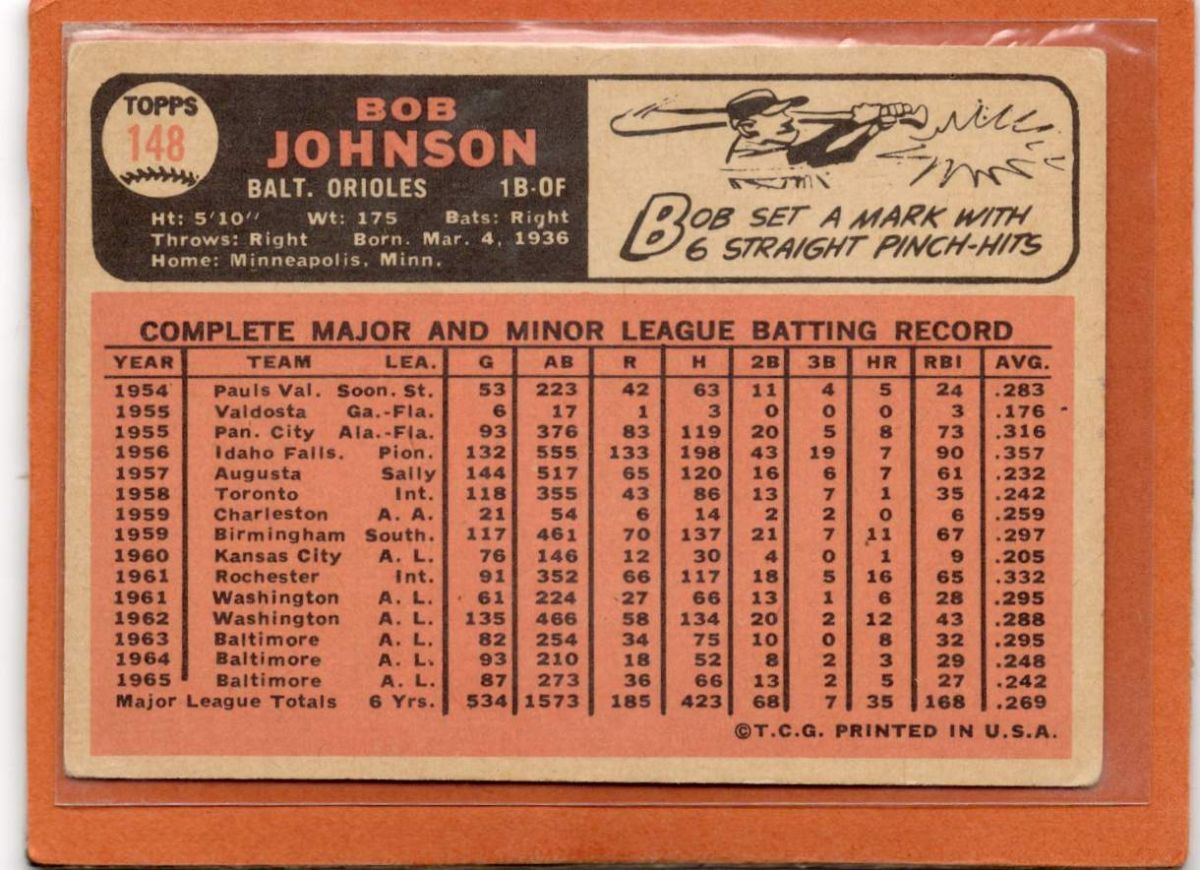 TOPPS
148
BOB
JOHNSON
BALT. ORIOLES 1B-OF
Ht: 5'10" Wt: 175 Bats: Right
Throws: Right Born. Mar. 4, 1936
Home: Minneapolis, Minn.
BOB SET A MARK WITH
6 STRAIGHT PINCH-HITS
COMPLETE MAJOR AND MINOR LEAGUE BATTING RECORD
YEAR TEAM LEA. G AB R H 2B 3B HR RBI AVG.
1954 Pauls Val. Soon. St. 53 223 42 63 11 4 5 24 .283
1955 Valdosta Ga.-Fla. 6 17 1 3 0 0 0 3 .176
1955 Pan. City Ala.-Fla. 93 376 83 119 20 5 8 73 .316
1956 Idaho Falls. Pion. 132 555 133 198 43 19 7 90 .357
1957 Augusta Sally 144 517 65 120 16 6 7 61 .232
1958 Toronto Int. 118 355 43 86 13 7 1 35 .242
1959 Charleston A. A. 21 54 6 14 2 2 0 6 .259
1959 Birmingham South. 117 461 70 137 21 7 11 67 .297
1960 Kansas City A. L. 76 146 12 30 4 0 1 9 .205
1961 Rochester Int. 91 352 66 117 18 5 16 65 .332
1961 Washington A. L. 61 224 27 66 13 1 6 28 .295
1962 Washington A. L. 135 466 58 134 20 2 12 43 .288
1963 Baltimore A. L. 82 254 34 75 10 0 8 32 .295
1964 Baltimore A. L. 93 210 18 52 8 2 3 29 .248
1965 Baltimore A. L. 87 273 36 66 13 2 5 27 .242
Major League Totals 6 Yrs. 534 1573 185 423 68 7 35 168 .269
©T.C.G. PRINTED IN U.S.A.